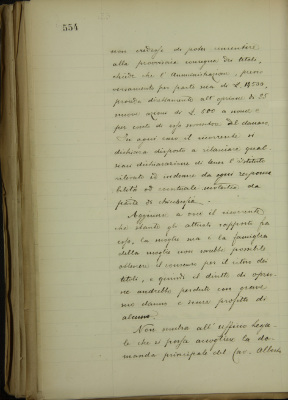 554
non creda di poter consentire
alla provvisoria consegna dei titoli,
chiede che l'Amministrazione, provvi
soriamente per parte sua di £. 11500,
provveda direttamente all'opzione di 23
nuove azioni di £. 500 a nome e
per conto di esso Del danaro
In ogni caso il ricorrente si
dichiara disposto a rilasciare qual
siasi dichiarazione di tenere l'istituto
rilevato ed indenne da ogni responsa
bilità od eventuale molestia da
parte di chicchessia.
Aggiunge a ciò il ricorrente
che stante gli attuali rapporti fra
esso, la moglie sua e la famiglia
della moglie non sarebbe possibile
ottenere il consenso per il ritiro dei
titoli, e quindi il diritto di opzio
ne andrebbe perduto con grave
suo danno e senza profitto di
alcuno.
Non sembra all'ufficio Lega
le che si possa accogliere la do
manda principale del Cav. Alberto